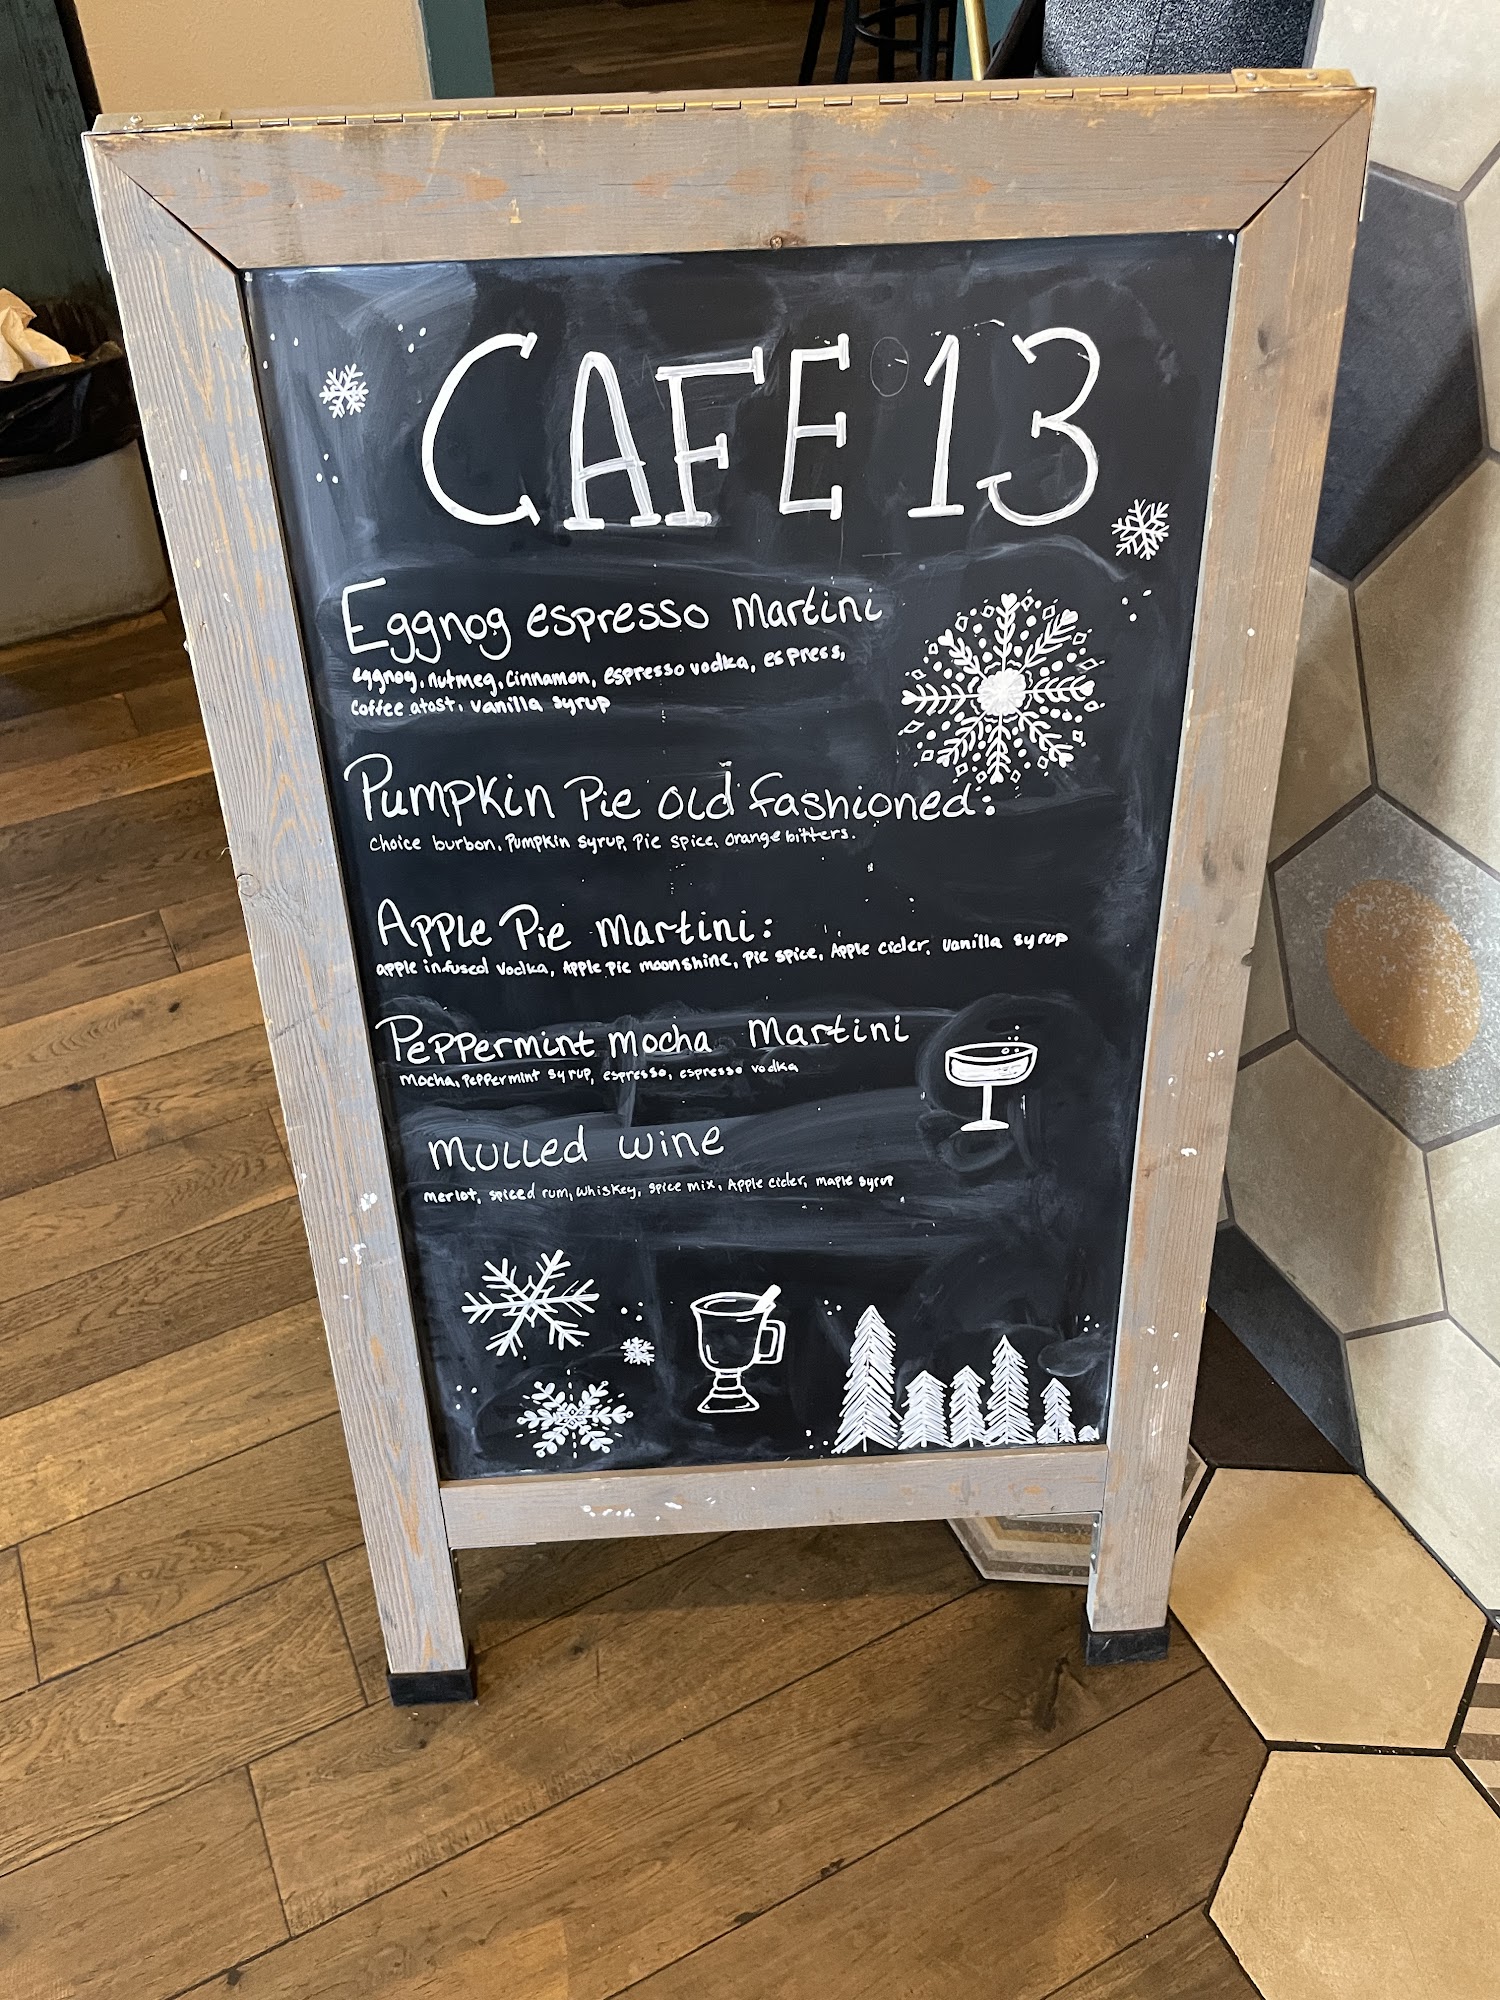 CAFE 13
Eggnog espresso Martini
eggnog, nutmeg, cinnamon, espresso vodka, espress,
coffee atost, vanilla syrup
Pumpkin Pie old fashioned:
choice burbon, Pumpkin syrup, Pie spice, orange bitters.
Apple Pie Martini:
apple infused vodka, Apple pie moonshine, pie spice, Apple cider, vanilla syrup
Peppermint mocha Martini
mocha, Peppermint syrup, espresso, espresso vodka
mulled wine
merlot, spiced rum, whiskey, spice mix, Apple cider, maple syrup